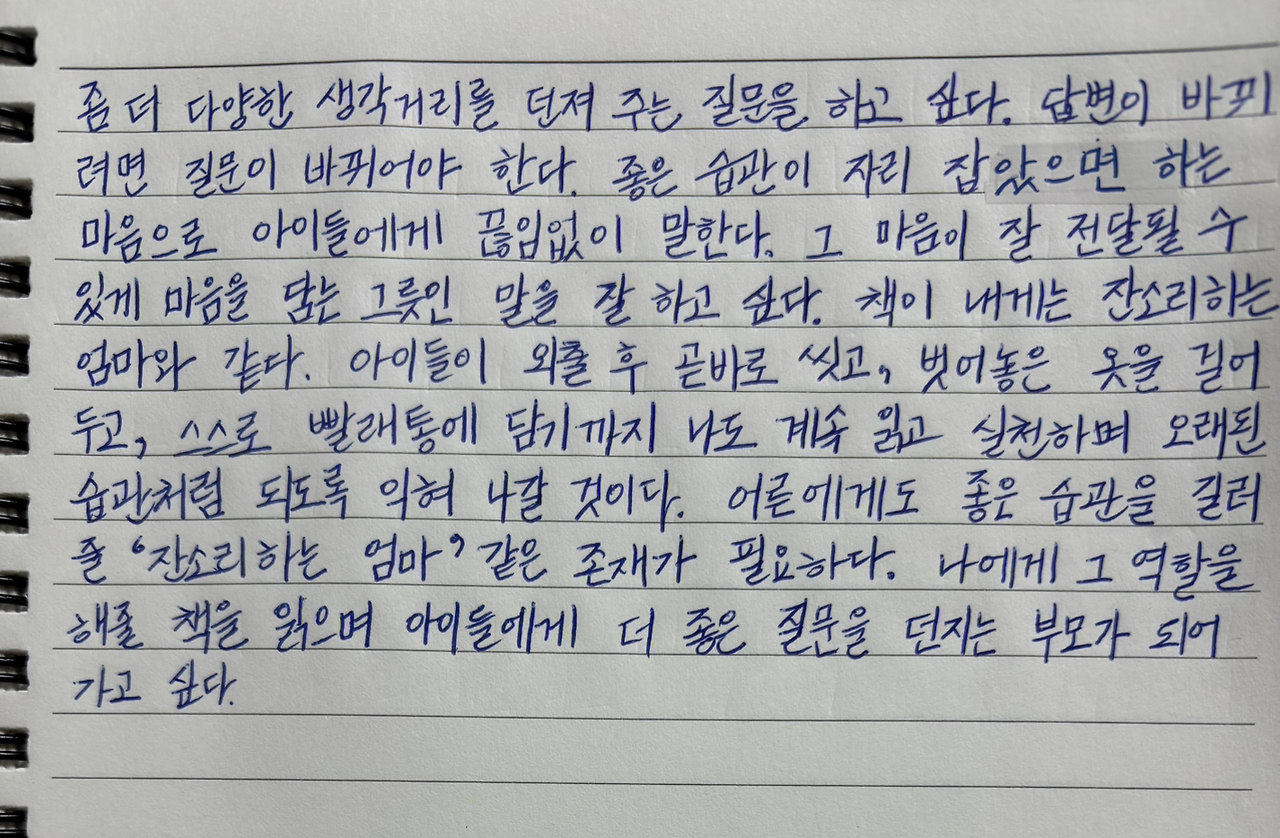 좀 더 다양한 생각거리를 던져 주는 질문을 하고 싶다. 답변이 바뀌
려면 질문이 바뀌어야 한다. 좋은 습관이 자리 잡았으면 하는
마음으로 아이들에게 끊임없이 말한다. 그 마음이 잘 전달될 수
있게 마음을 담는 그릇인 말을 잘 하고 싶다. 책이 내게는 잔소리하는
엄마와 같다. 아이들이 외출 후 곧바로 씻고, 벗어놓은 옷을 걸어
두고, 스스로 빨래통에 담기까지 나도 계속 읽고 실천하며 오래된
습관처럼 되도록 익혀 나갈 것이다. 어른에게도 좋은 습관을 길러
줄 '잔소리하는 엄마' 같은 존재가 필요하다. 나에게 그 역할을
해줄 책을 읽으며 아이들에게 더 좋은 질문을 던지는 부모가 되어
가고 싶다.